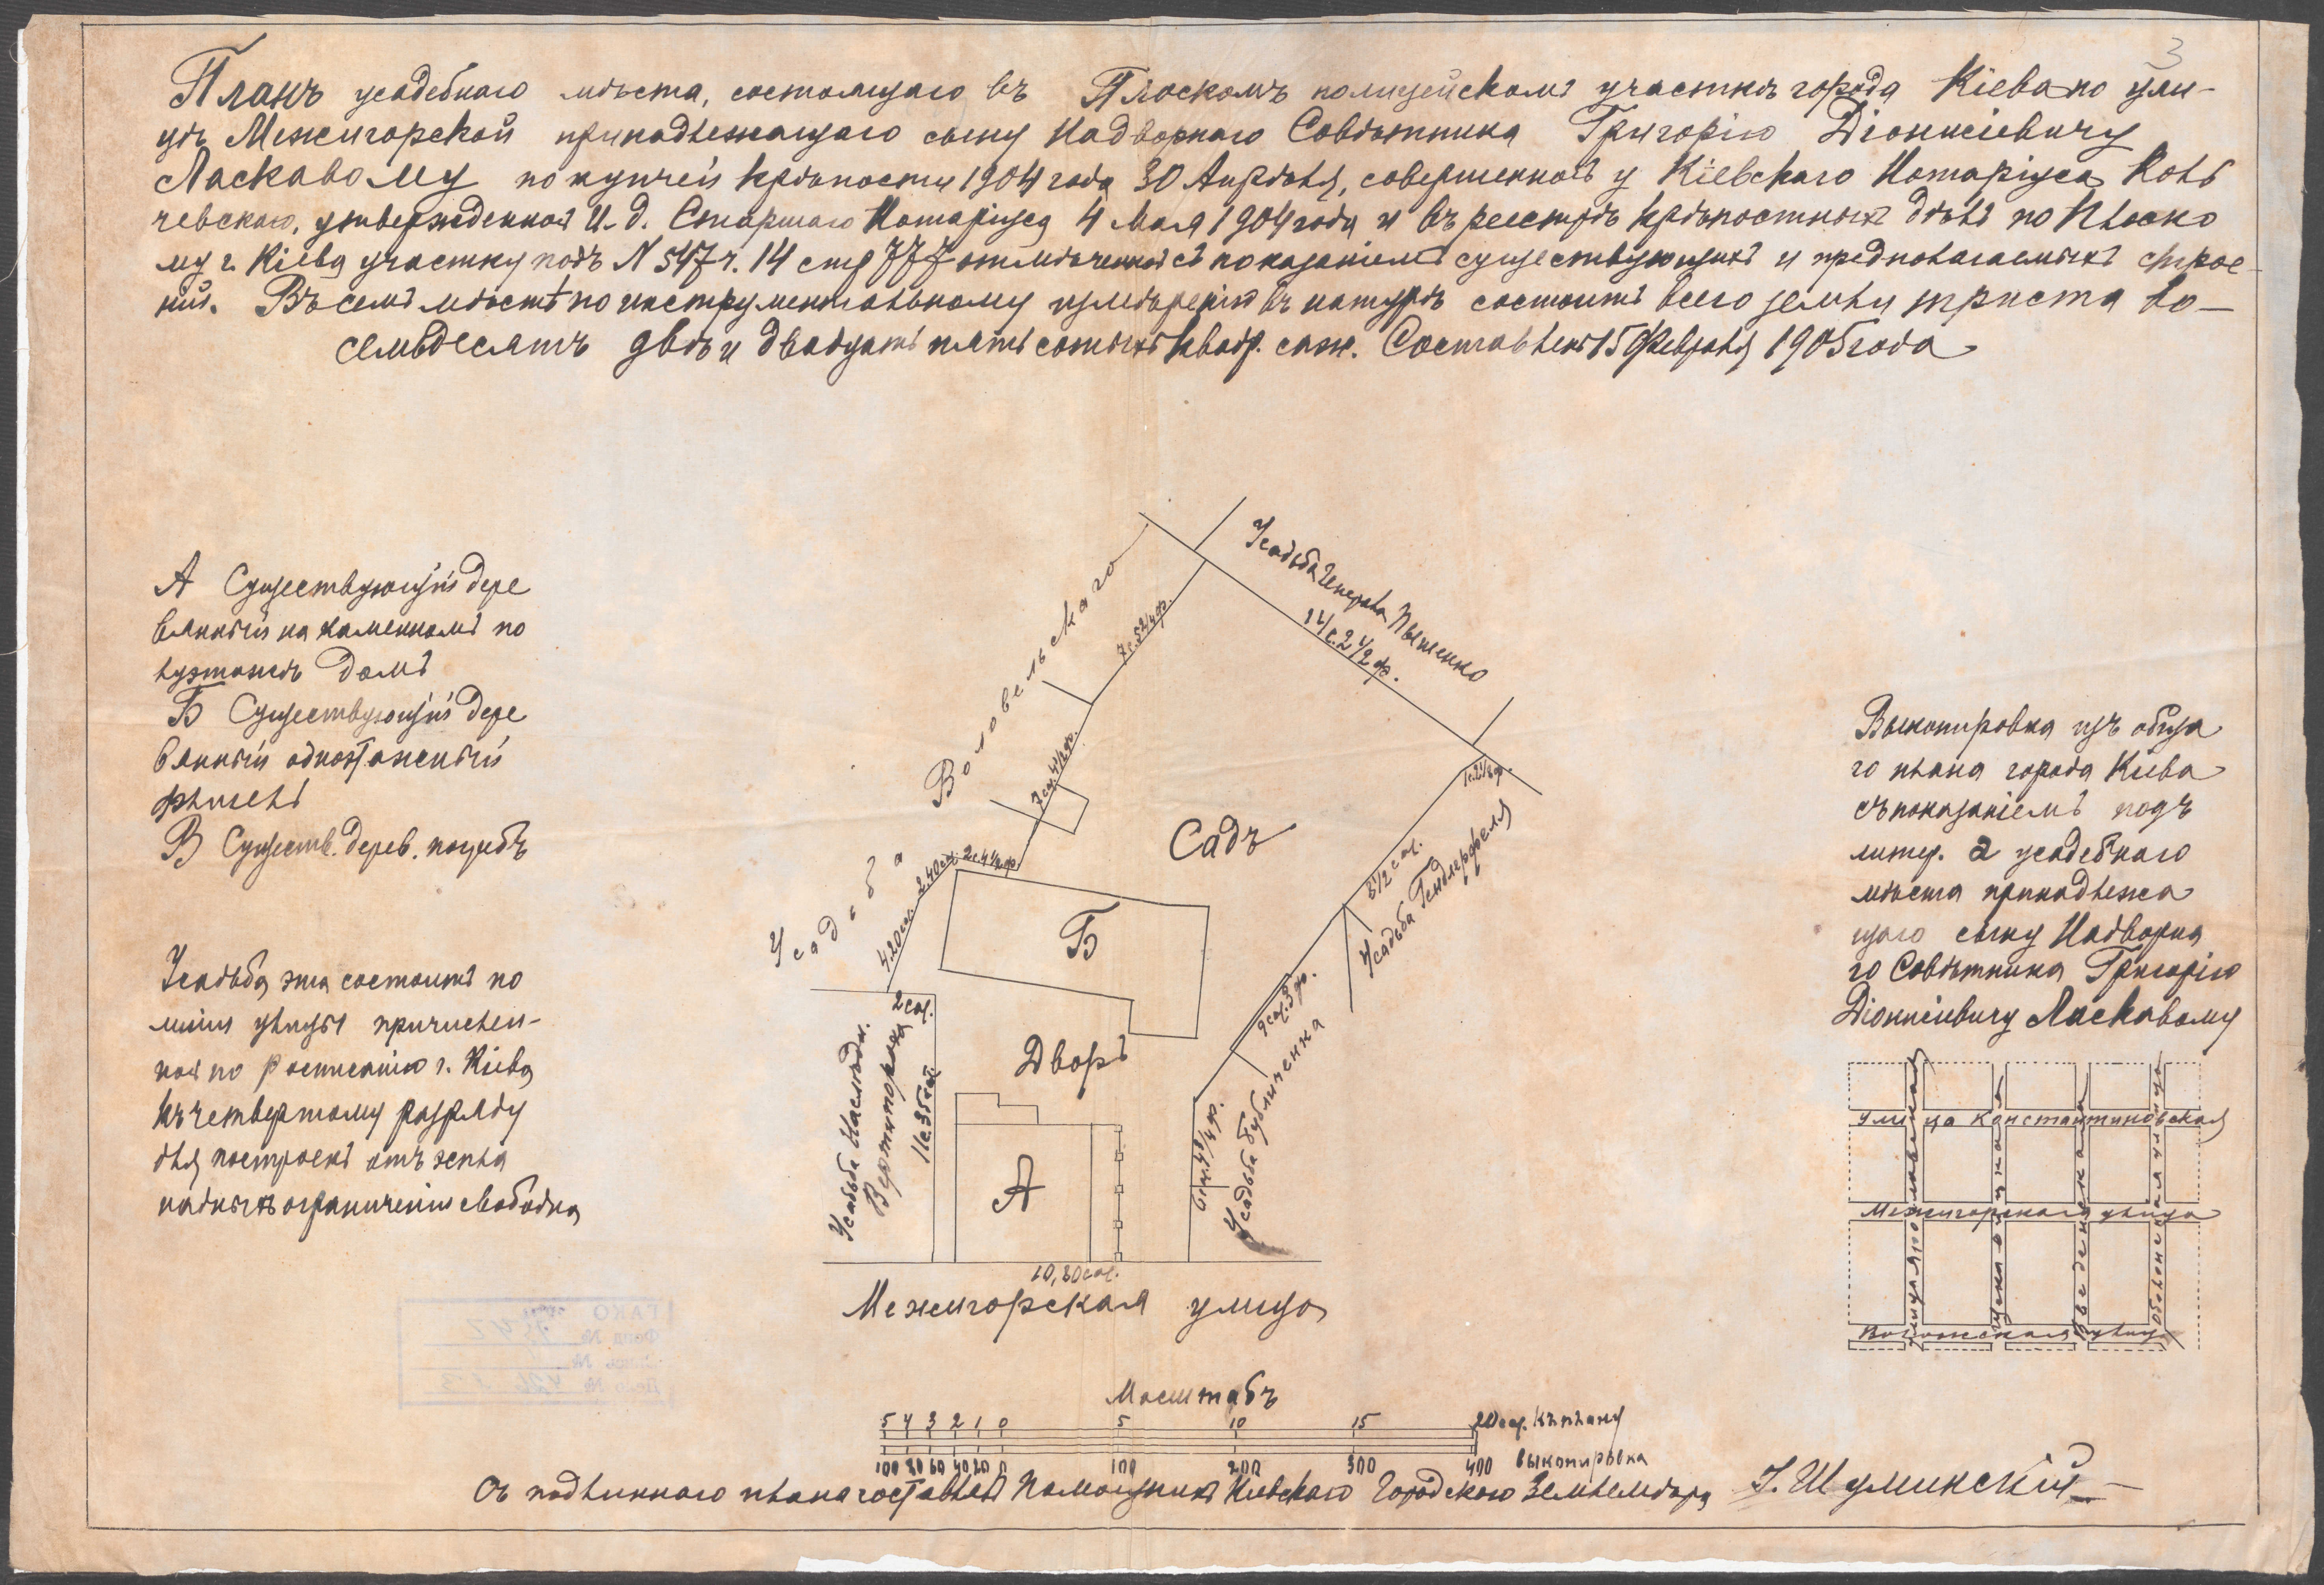 3
Планъ усадебнаго мѣста, состоящаго въ Плоскомъ полицейскомъ участкѣ города Кіева по ули-
цѣ Межигорской принадлежащаго сыну Надворнаго Совѣтника Григорію Діонисіевичу
Ласкавому по купчей крѣпости 1904 года 30 Апрѣля, совершенной у Кіевскаго Нотаріуса
чевскаго, утвержденной И. д. Старшаго Нотаріуса 4 Мая 1904 года и въ реестрѣ крѣпостныхъ дѣлъ по Плоско
му г. Кіева участку подъ N 547 ч. 14 стр 777 отмѣченной съ показаніемъ существующихъ и предполагаемыхъ строе-
ній. Въ семъ мѣстѣ по инструментальному измѣренію въ натурѣ состоитъ всего земли триста во-
семьдесятъ двѣ и двадцать пять сотыхъ квадр. саж. Составленъ 15 Февраля 1905 года
А Существующій дере
вянный на каменномъ по
луэтажѣ домъ
Б Существующій дере
вянный одноэтажный
флигель
В Существ. дерев. погребъ
Усадьба эта состоитъ по
линіи улицы причислен-
ной по росписанію г. Кіева
къ четвертому разряду
для построекъ отъ эспла
надныхъ ограниченій свободна
Усадьба Воловельскаго
Усадьба Генерала Пышенко
14 с. 2 1/2 ф.
7 с. 5 3/4 ф.
7 саж. 4 1/2 ф.
2 с. 4 1/2 ф.
2.40 саж.
4.20 саж.
2 саж.
1 с. 2 1/8 ф.
8 1/2 саж.
Усадьба Гендлерфеля
9 саж. 3 ф.
Садъ
Б
Дворъ
А
Усадьба Наслѣдн.
Вертипороха
11 с. 3 1/2 ф.
6 саж. 4 3/4 ф.
Усадьба Бубличенка
10,80 саж.
Межигорская улица
Выкопировка изъ обща
го плана города Кіева
съ показаніемъ подъ
литер. а усадебнаго
мѣста принадлежа
щаго сыну Надворна
го Совѣтника Григорію
Діонисіевичу Ласкавому
Улица Константиновская
Межигорская улица
Волошская улица
Улица Ярославская
Введенская
Оболонская улица
Масштабъ
5 4 3 2 1 0 5 10 15 20 саж. къ плану
100 80 60 40 20 0 100 200 300 400 выкопировка
Съ подлиннаго плана составлялъ Помощникъ Кіевскаго Городского Землемѣра І. Шуминскій
ГАКО
Фонд №
Опись №
Дело №